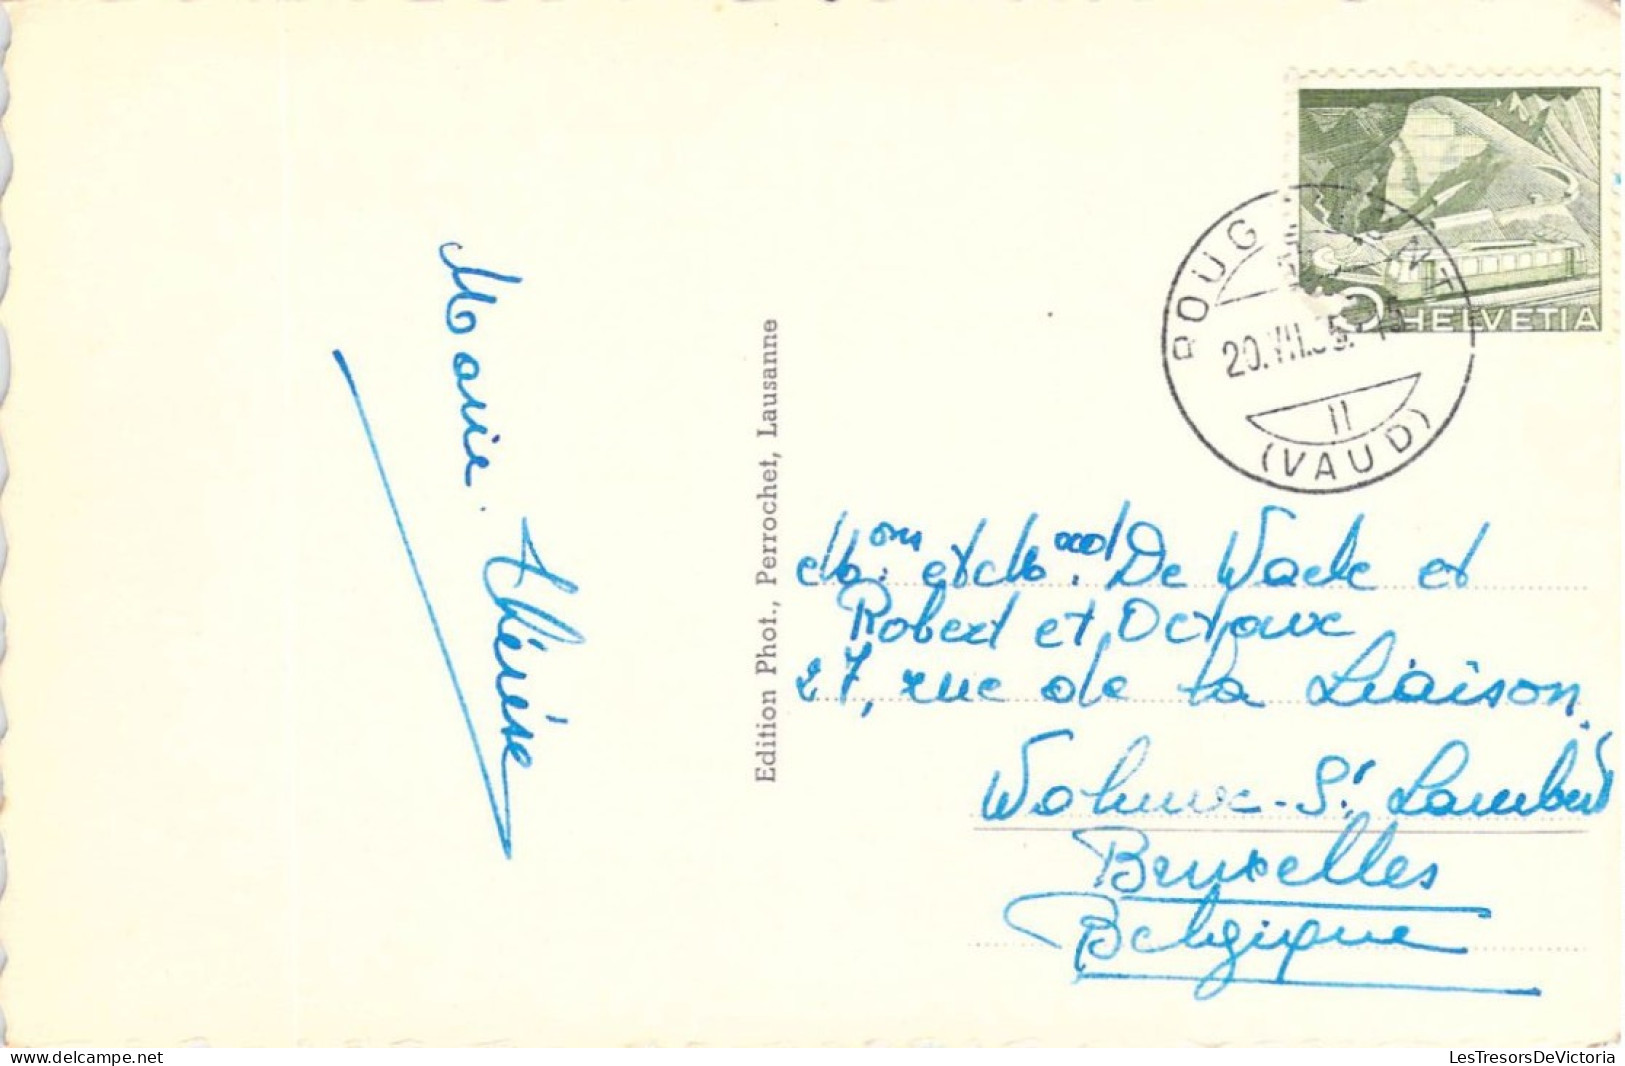 Marie-Thérèse
Edition Phot., Perrochet, Lausanne
5 HELVETIA
ROUGEMONT
20.VII.55.-15
II
(VAUD)
Mons. et Mad. De Waele et
Robert et Octave
27, rue de la Liaison.
Woluwe-St. Lambert
Bruxelles
Belgique
www.delcampe.net
LesTresorsDeVictoria